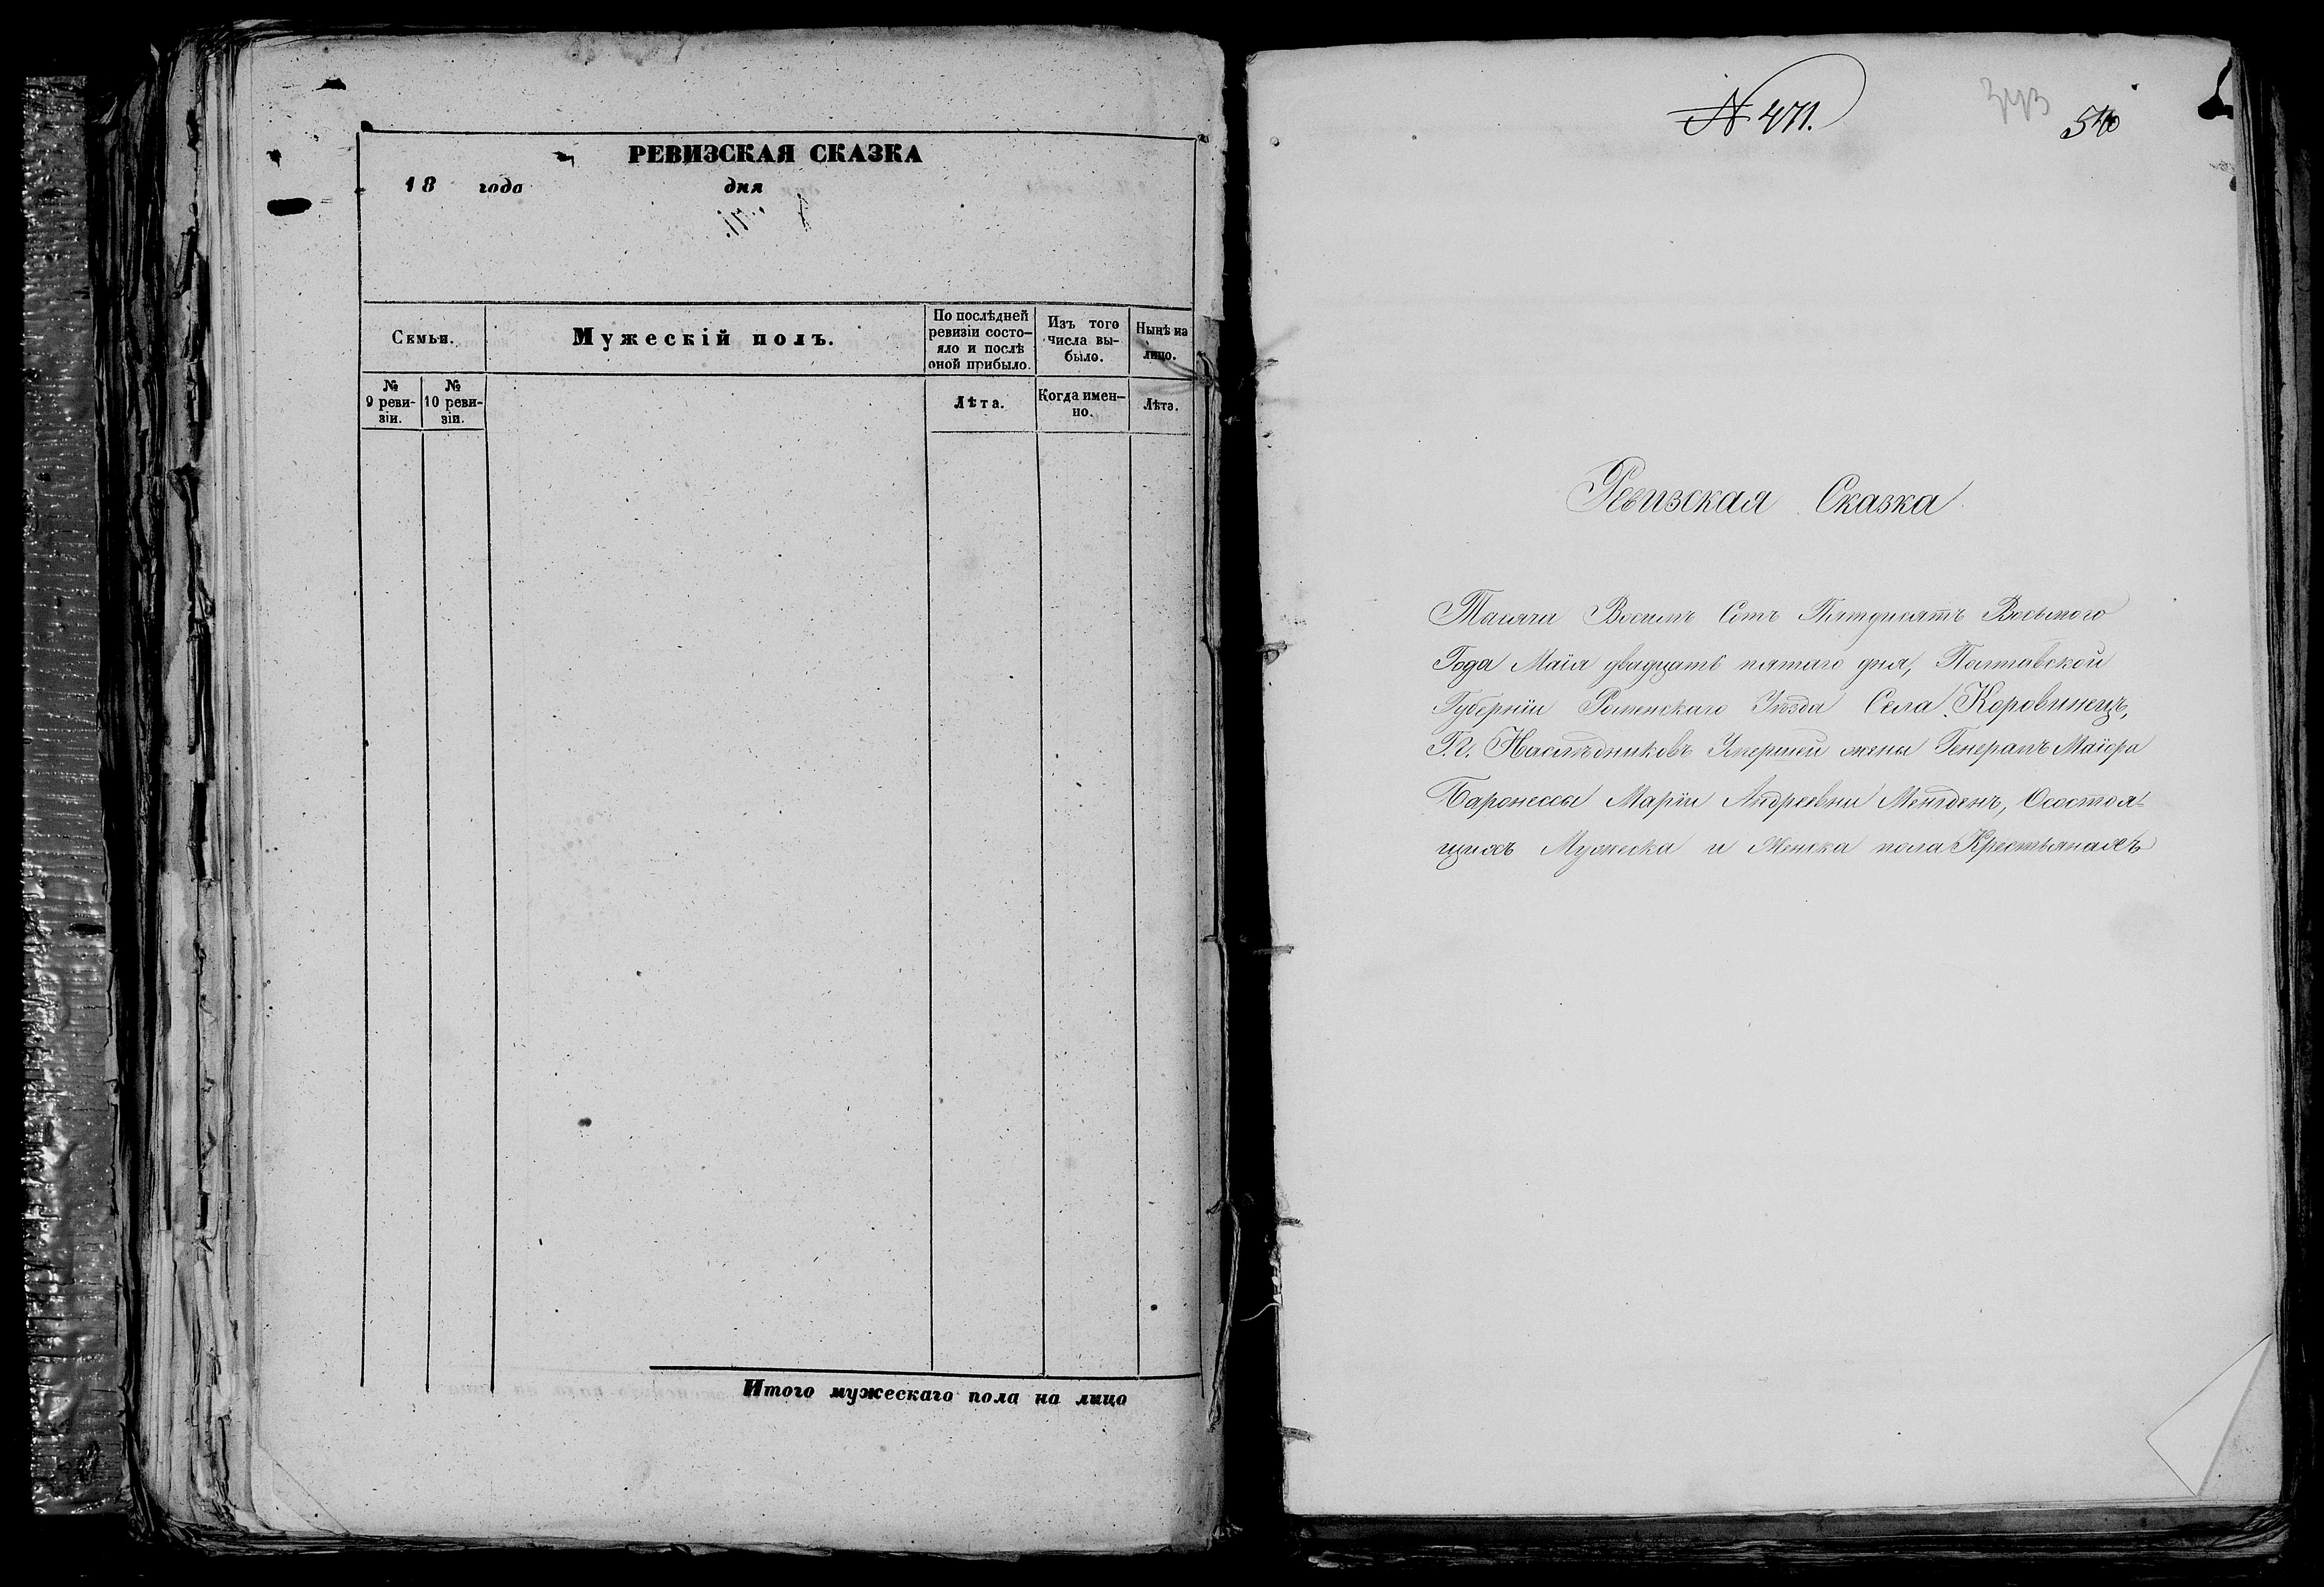 РЕВИЗСКАЯ СКАЗКА
18 года дня
Семьи.
Мужескій полъ.
По послѣдней ревизіи состо-
яло и послѣ
оной прибыло.
Изъ того
числа вы-
было.
Нынѣ на
лицо.
№
9 реви-
зіи.
№
10 реви-
зіи.
Лѣта.
Когда имен-
но.
Лѣта.
Итого мужескаго пола на лицо
№ 471.
540
Ревизская Сказка
Тысяча Восемь Сотъ Пятдисятъ Восьмого
Года Маія двадцать пятаго дня, Полтавской
Губерніи Роменскаго Уѣзда Села Коровинецъ,
Г.г. Наслѣдниковъ Умершей жены Генералъ Маіора
Баронессы Маріи Андреевны Менгденъ, Осостоя-
щихъ Мужеска и Женска пола Крестьянахъ